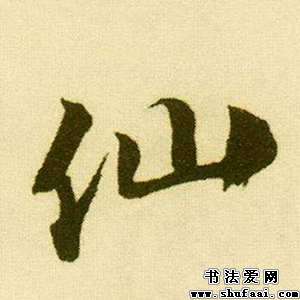 仙
书法爱网
www.shufaai.com